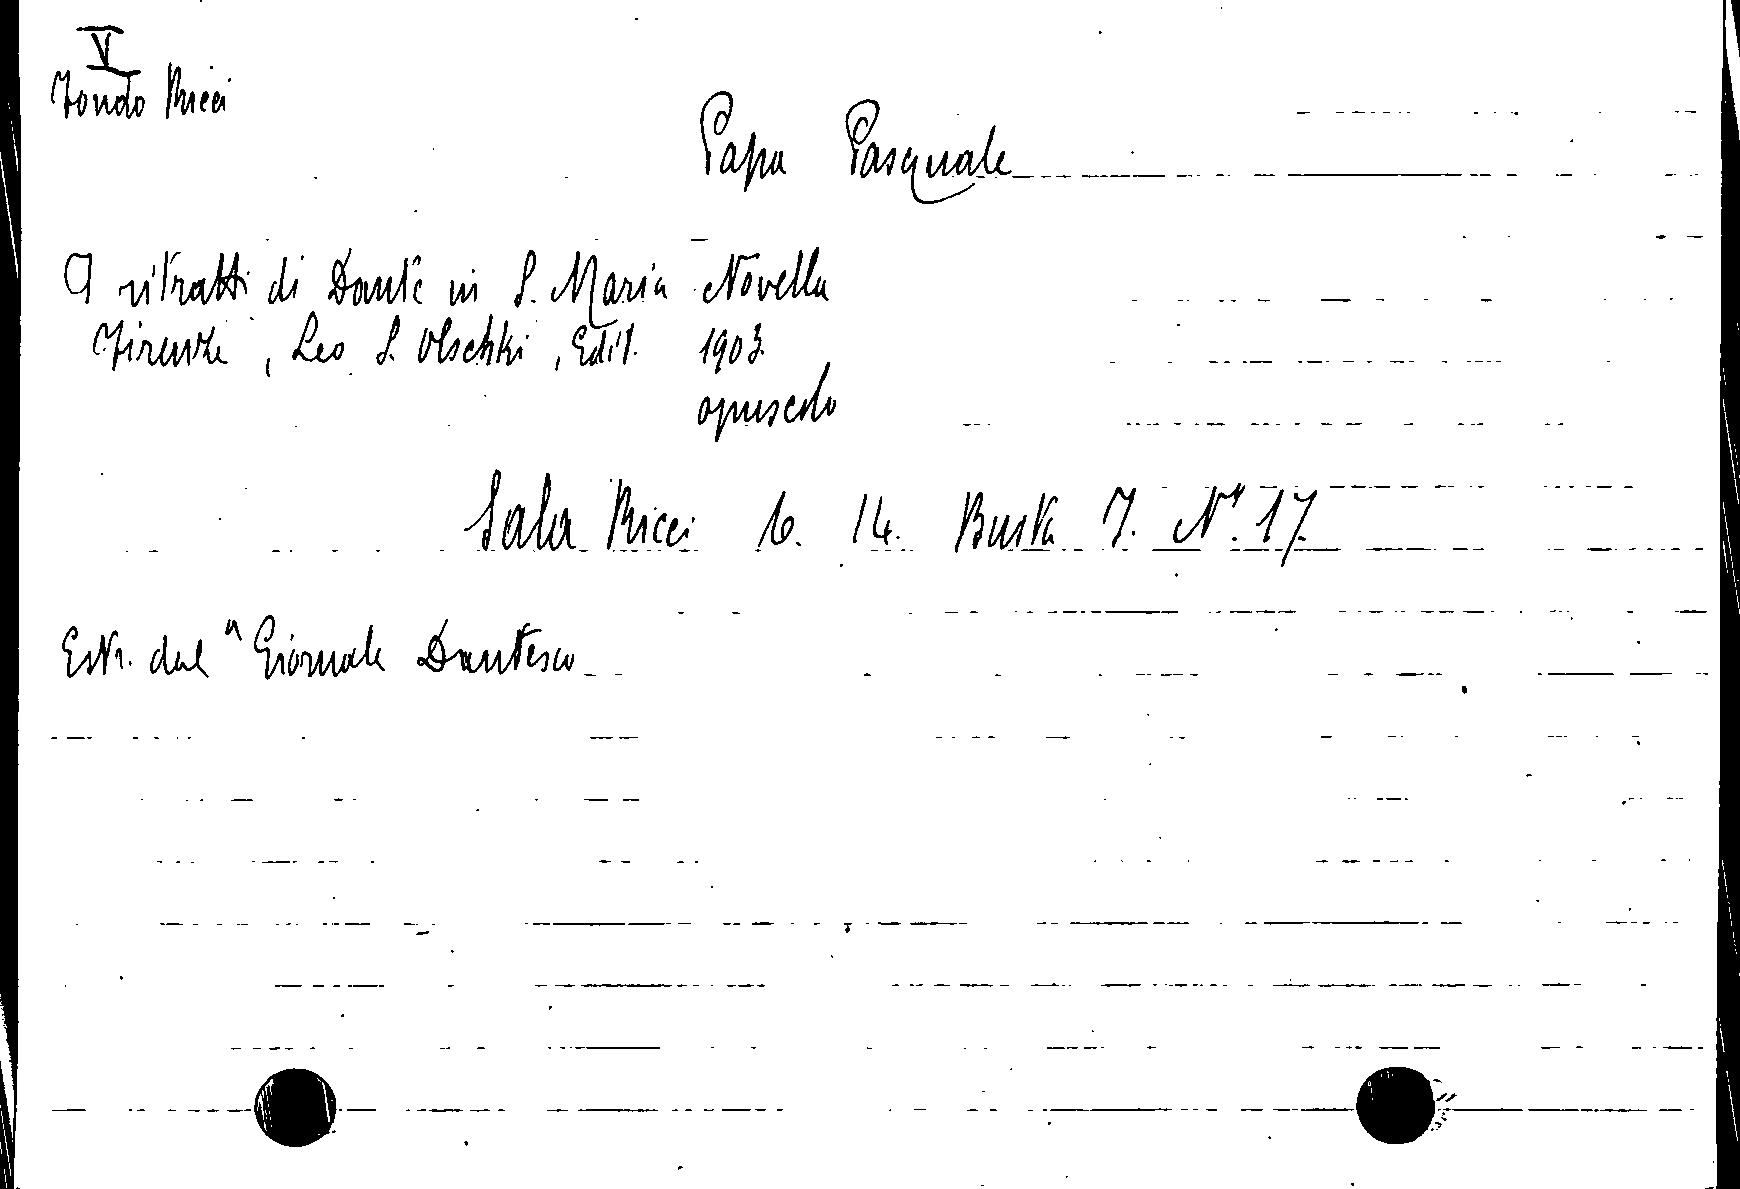 V
Fondo Ricci
Papa Pasquale
I ritratti di Dante in S. Maria Novella
Firenze, Leo S. Olschki, Edit. 1903.
opuscolo
Sala Ricci 6. 14. Busta 7. N° 17.
Estr. dal "Giornale Dantesco